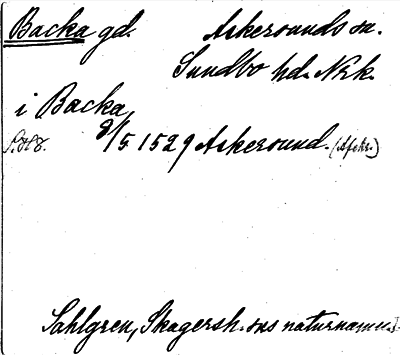 Backa gd. Askersunds sn.
Sundbo hd. Nrk.
i Backa
2/5 1529 Askersund. (Afskr.)
Sahlgren, Skagersh. sns naturnamn.